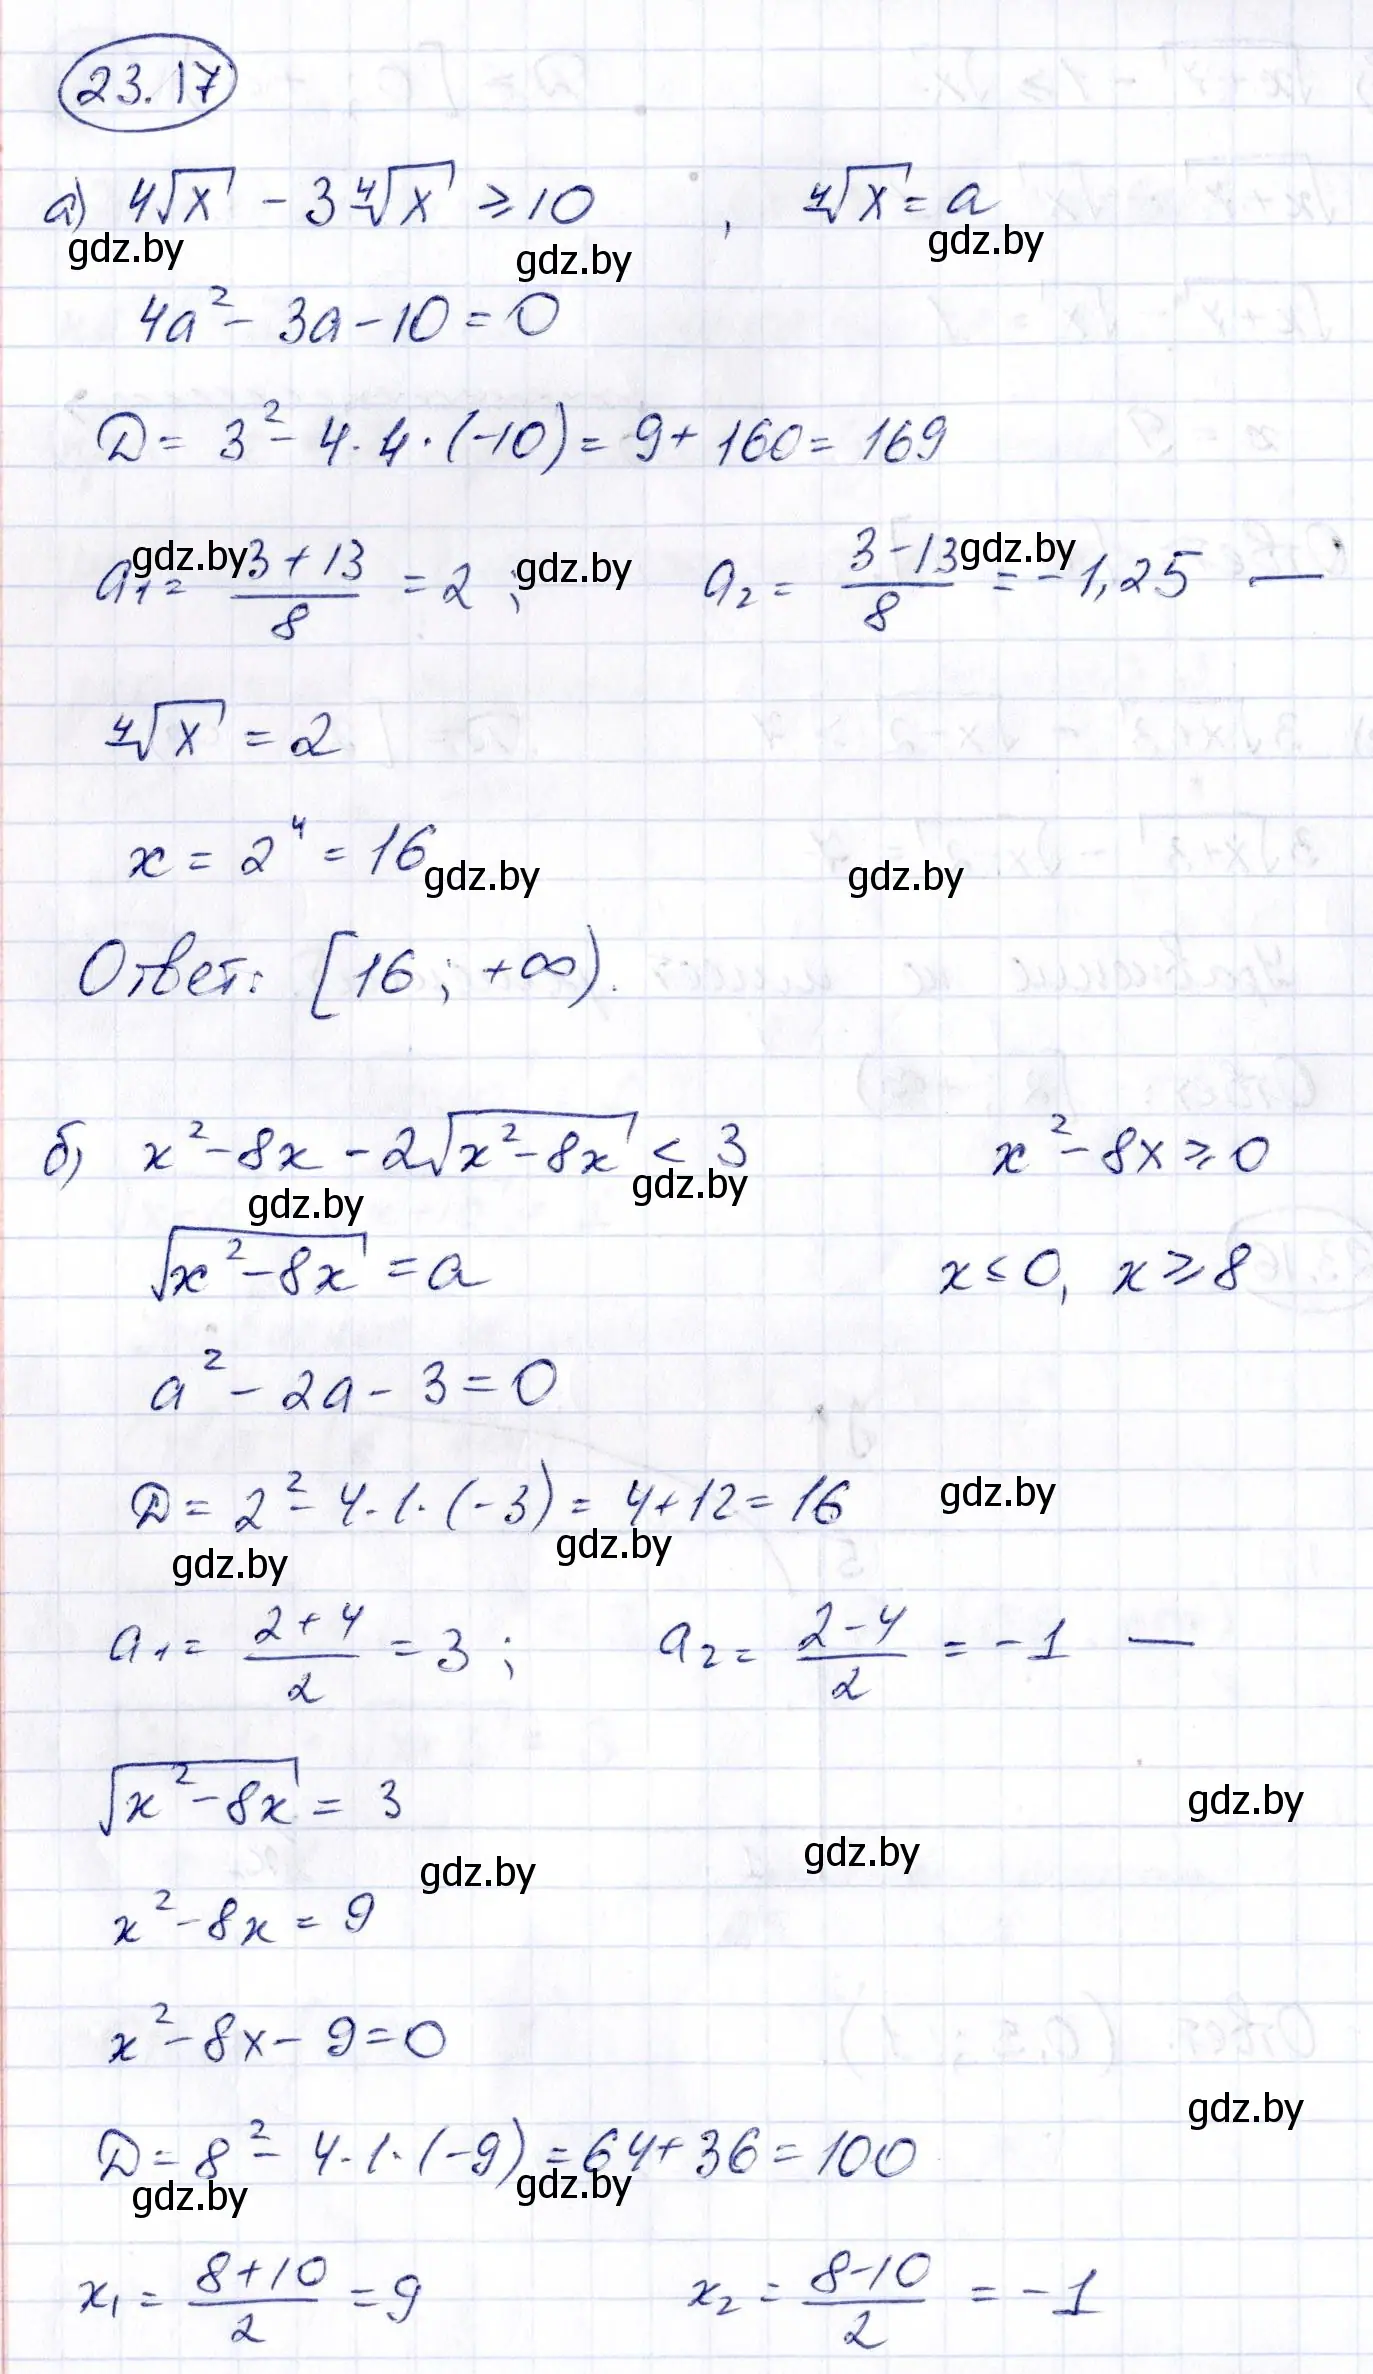 23.17
а) 4√x - 3⁴√x ≥ 10 , ⁴√x = a
gdz.by gdz.by gdz.by
4a² - 3a - 10 = 0
D = 3² - 4·4·(-10) = 9 + 160 = 169
a₁ = (3+13)/8 = 2 ; a₂ = (3-13)/8 = -1,25 —
gdz.by gdz.by gdz.by
⁴√x = 2
x = 2⁴ = 16
gdz.by gdz.by
Ответ: [16; +∞).
б) x² - 8x - 2√(x² - 8x) < 3 x² - 8x ≥ 0
gdz.by gdz.by
√(x² - 8x) = a x ≤ 0, x ≥ 8
a² - 2a - 3 = 0
D = 2² - 4·1·(-3) = 4 + 12 = 16 gdz.by
gdz.by gdz.by
a₁ = (2+4)/2 = 3 ; a₂ = (2-4)/2 = -1 —
√(x² - 8x) = 3 gdz.by
gdz.by gdz.by
x² - 8x = 9
x² - 8x - 9 = 0
gdz.by
D = 8² - 4·1·(-9) = 64 + 36 = 100
gdz.by gdz.by
x₁ = (8+10)/2 = 9 x₂ = (8-10)/2 = -1